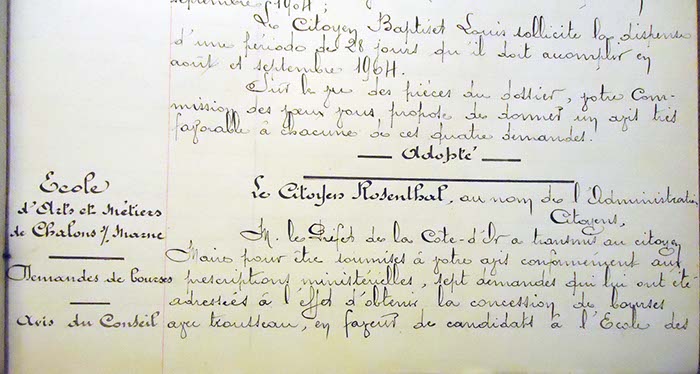 septembre 1904 ;
Le Citoyen Baptiset Louis sollicite la dispense
d'une période de 28 jours qu'il doit accomplir en
août et septembre 1904.
Sur le vu des pièces du dossier, votre Com-
mission des vœux vous propose de donner un avis très
favorable à chacune de ces quatre demandes.
Adopté
Ecole
d'Arts et Métiers
de Chalons s/ Marne
Demandes de bourses
Avis du Conseil
Le Citoyen Rosenthal, au nom de l'Administration
Citoyens,
M. le Préfet de la Côte-d'Or a transmis au citoyen
Maire pour être soumises à votre avis conformément aux
prescriptions ministérielles, sept demandes qui lui ont été
adressées à l'effet d'obtenir la concession de bourses
avec trousseau, en faveur de candidats à l'Ecole des